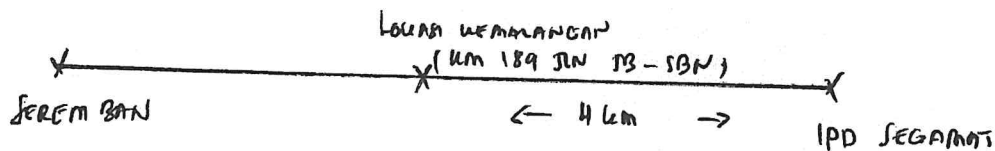 LOKASI KEMALANGAN
(KM 189 JLN JB-SBN)
SEREMBAN
← 4 km →
IPD SEGAMAT